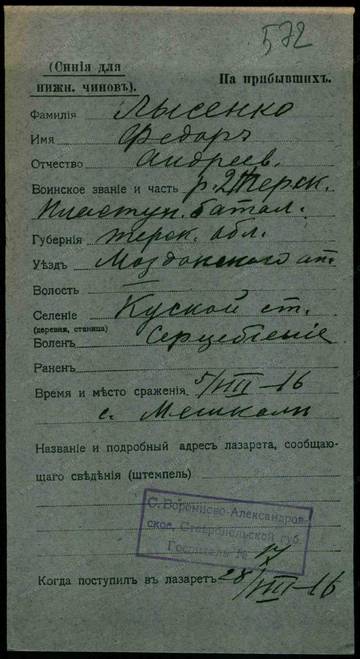 572
(Синія для нижн. чиновъ).
На прибывшихъ.
Фамилія Лысенко
Имя Федоръ
Отчество Андреев.
Воинское званіе и часть р. 2 Терск.
Пластун. батал.
Губернія Терск. обл.
Уѣздъ Моздокскаго от.
Волость —
Селеніе Курской ст.
(деревня, станица)
Боленъ Сердцебіеніе
Раненъ
Время и мѣсто сраженія 5/VII–16
с.
Названіе и подробный адресъ лазарета, сообщаю-
щаго свѣдѣнія (штемпель)
С. Воронцово-Александров-
ское, Ставропольской губ.
Госпиталь №
Когда поступилъ въ лазаретъ 28/VII–16